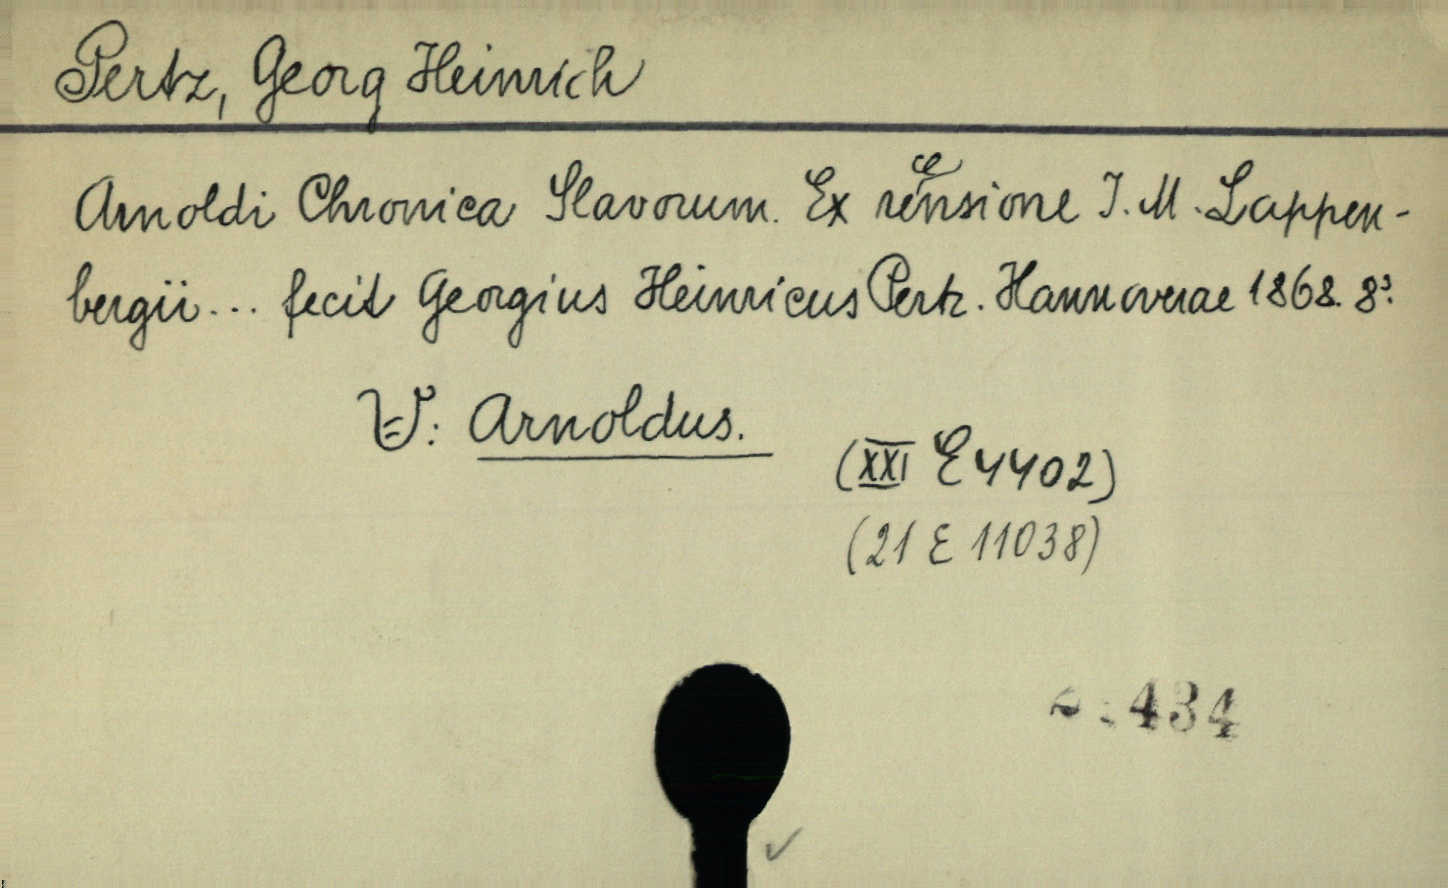 Pertz, Georg Heinrich
Arnoldi Chronica Slavorum. Ex recensione I. M. Lappen-
bergii... fecit Georgius Heinricus Pertz. Hannoverae 1868. 8°.
V: Arnoldus.
(XXI E 4402)
(21 E 11038)
434